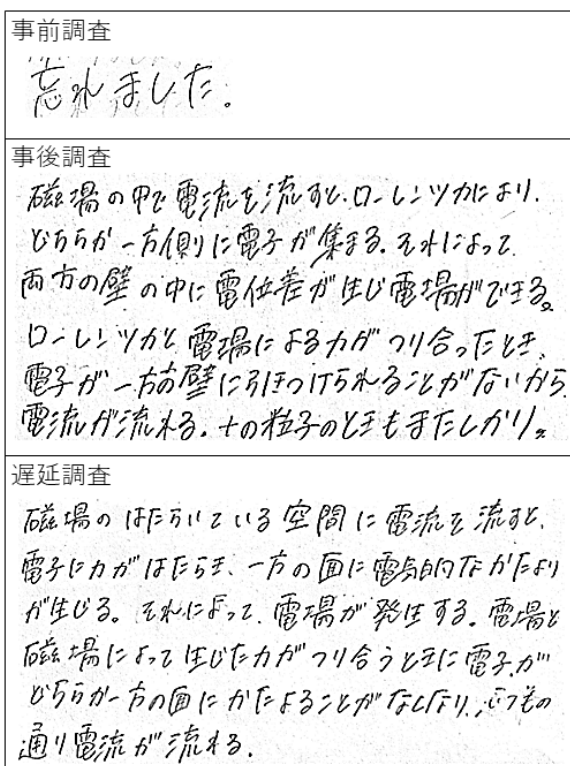 事前調査
忘れました。
事後調査
磁場の中で電流を流すと、ローレンツ力により、
どちらか一方側に電子が集まる。それによって
両方の壁の中に電位差が生じ電場ができる。
ローレンツ力と電場による力がつり合ったとき、
電子が一方の壁に引きつけられることがないから
電流が流れる。+の粒子のときもまたしかり。
遅延調査
磁場のはたらいている空間に電流を流すと、
電子に力がはたらき、一方の面に電気的なかたより
が生じる。それによって、電場が発生する。電場と
磁場によって生じた力がつり合うときに電子が
どちらか一方の面にかたよることがなくなり、いつもの
通り電流が流れる。